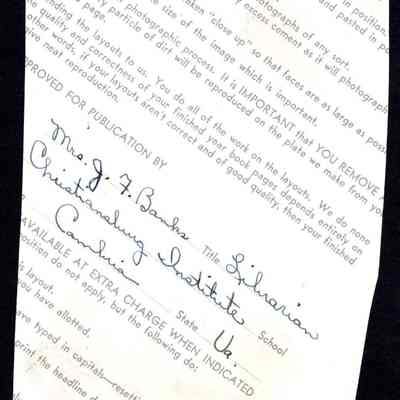 photographs of any sort.
and passed in position.
taken "close up" so that faces are as large as poss
he size of the image which is important.
y excess cement as it will photograph
photographic process. It is IMPORTANT that YOU REMOVE A
y particle of dirt will be reproduced on the plate we make from you
page.
nding the layouts to us. You do all of the work on the layouts. We do none
he quality and correctness of your finished year book pages depends entirely on
other words, if your layouts aren't correct and of good quality, then your finished
give neat reproduction.
PROVED FOR PUBLICATION BY
Mrs. J. F. Banks Title Librarian
Christiansburg Institute School
Cambria State Va.
AVAILABLE AT EXTRA CHARGE WHEN INDICATED
position do not apply, but the following do:
is layout.
you have allotted.
ave typed in capitals—resetti
print the headline d